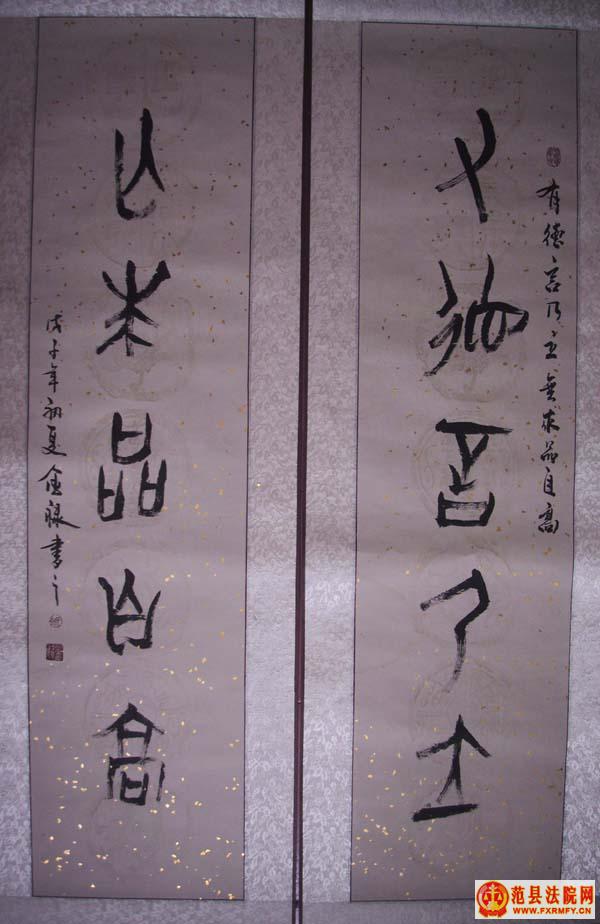 有德言乃立無求品自高
有德言乃立
無求品自高
戊子年初夏金禄書之
范县法院网
WWW.FXRMFY.CN